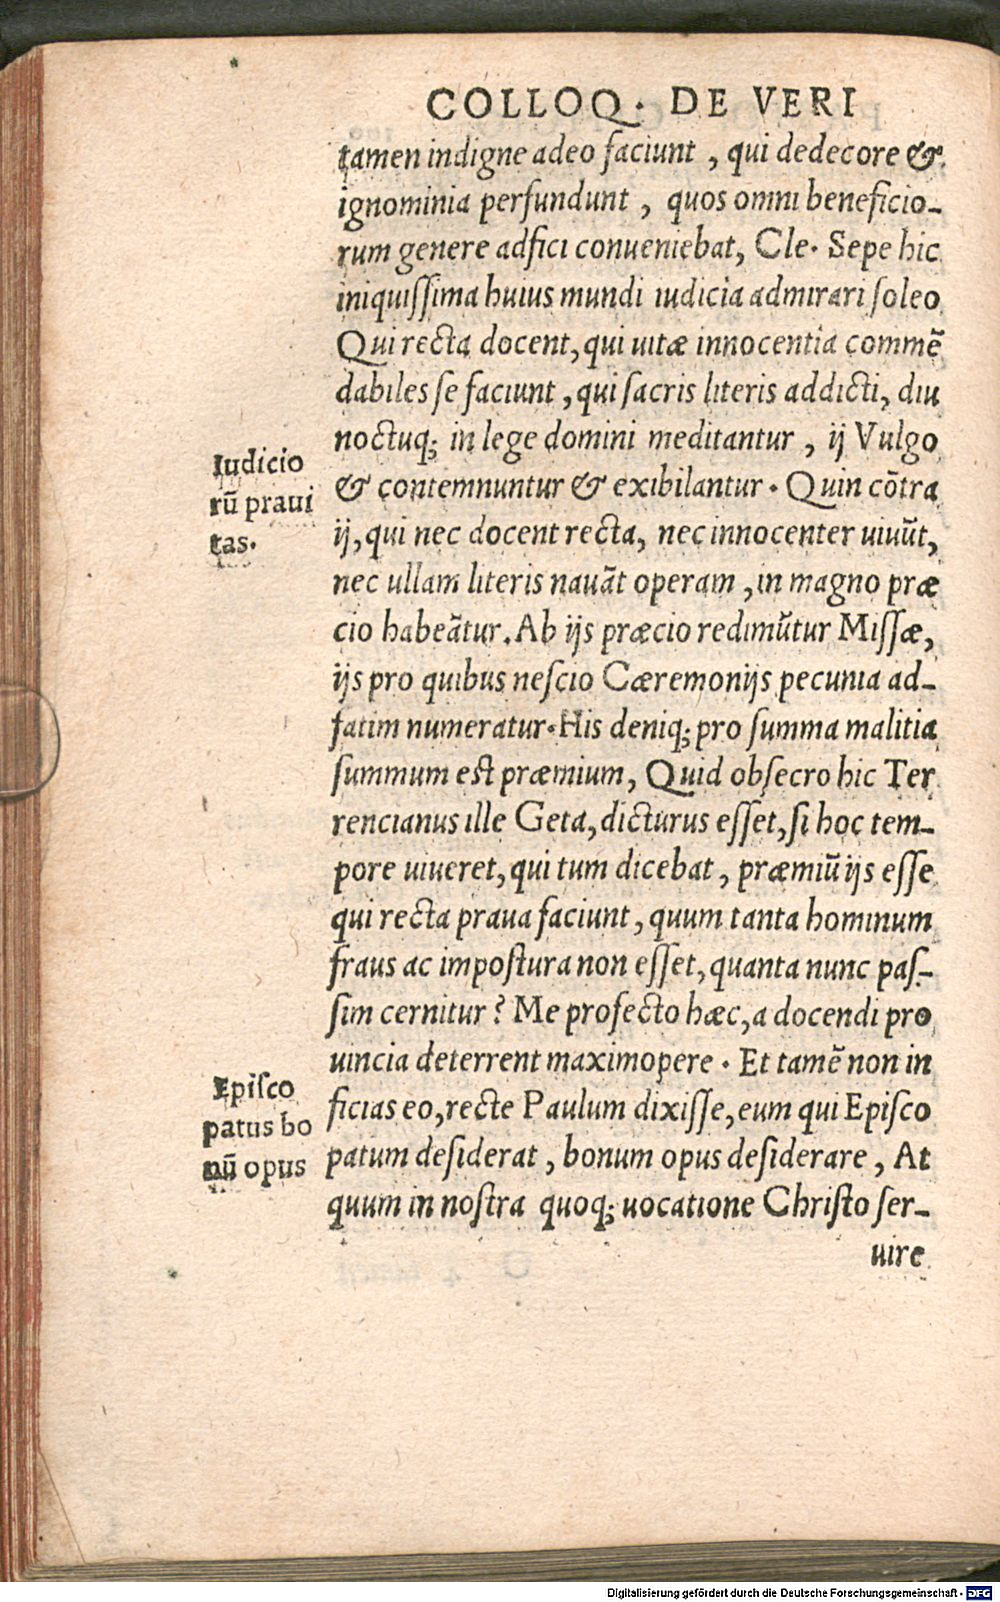 COLLOQ. DE VERI
tamen indigne adeo faciunt, qui dedecore &
ignominia perfundunt, quos omni beneficio-
rum genere adfici conueniebat, Cle. Sepe hic
iniquissima huius mundi iudicia admirari soleo
Qui recta docent, qui uitæ innocentia commẽ
dabiles se faciunt, qui sacris literis addicti, diu
noctuq; in lege domini meditantur, ij Vulgo
& contemnuntur & exibilantur. Quin cõtra
ij, qui nec docent recta, nec innocenter uiuũt,
nec ullam literis nauãt operam, in magno præ
cio habeãtur. Ab ijs præcio redimũtur Missæ,
ijs pro quibus nescio Cæremonijs pecunia ad-
fatim numeratur. His deniq; pro summa malitia
summum est præmium, Quid obsecro hic Ter
rencianus ille Geta, dicturus esset, si hoc tem-
pore uiueret, qui tum dicebat, præmiũ ijs esse
qui recta praua faciunt, quum tanta hominum
fraus ac impostura non esset, quanta nunc pas-
sim cernitur? Me profecto hæc, a docendi pro
uincia deterrent maximopere. Et tamẽ non in
ficias eo, recte Paulum dixisse, eum qui Episco
patum desiderat, bonum opus desiderare, At
quum in nostra quoq; uocatione Christo ser-
uire
Iudicio
rũ praui
tas.
Episco
patus bo
nũ opus
Digitalisierung gefördert durch die Deutsche Forschungsgemeinschaft - DFG